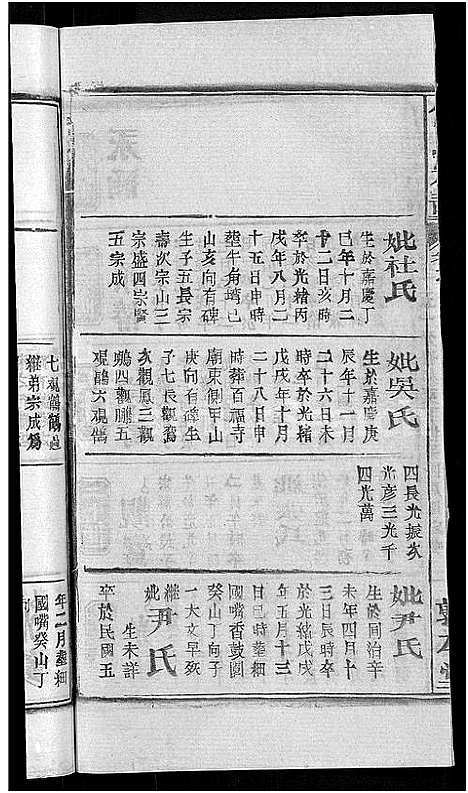 妣杜氏
生於嘉慶丁
巳年十月二
十二日亥時
卒於光緒丙
戌年八月二
十五日申時
塟牛角塆巳
山亥向有碑
生子五長宗
壽次宗山三
宗盛四宗賢
五宗成
妣吳氏
生於嘉慶庚
辰年十一月
二十六日未
時卒於光緒
戊戌年十月
二十八日申
時葬百福寺
廟東側甲山
庚向有碑生
子七長觀鶩
次觀鳳三觀
鵷四觀鵬五
觀鶴六觀鶴
四長光振次
光彦三光千
四光萬
妣尹氏
生於同治辛
未年四月十
三日辰時卒
於光緒戊戌
年五月十三
日巳時塟細
國嘴香鼓園
癸山丁向子
一大文早歿
繼
妣尹氏
生未詳
卒於民國五
七觀鶴
繼弟宗成為
年二月塟細
國嘴癸山丁
向